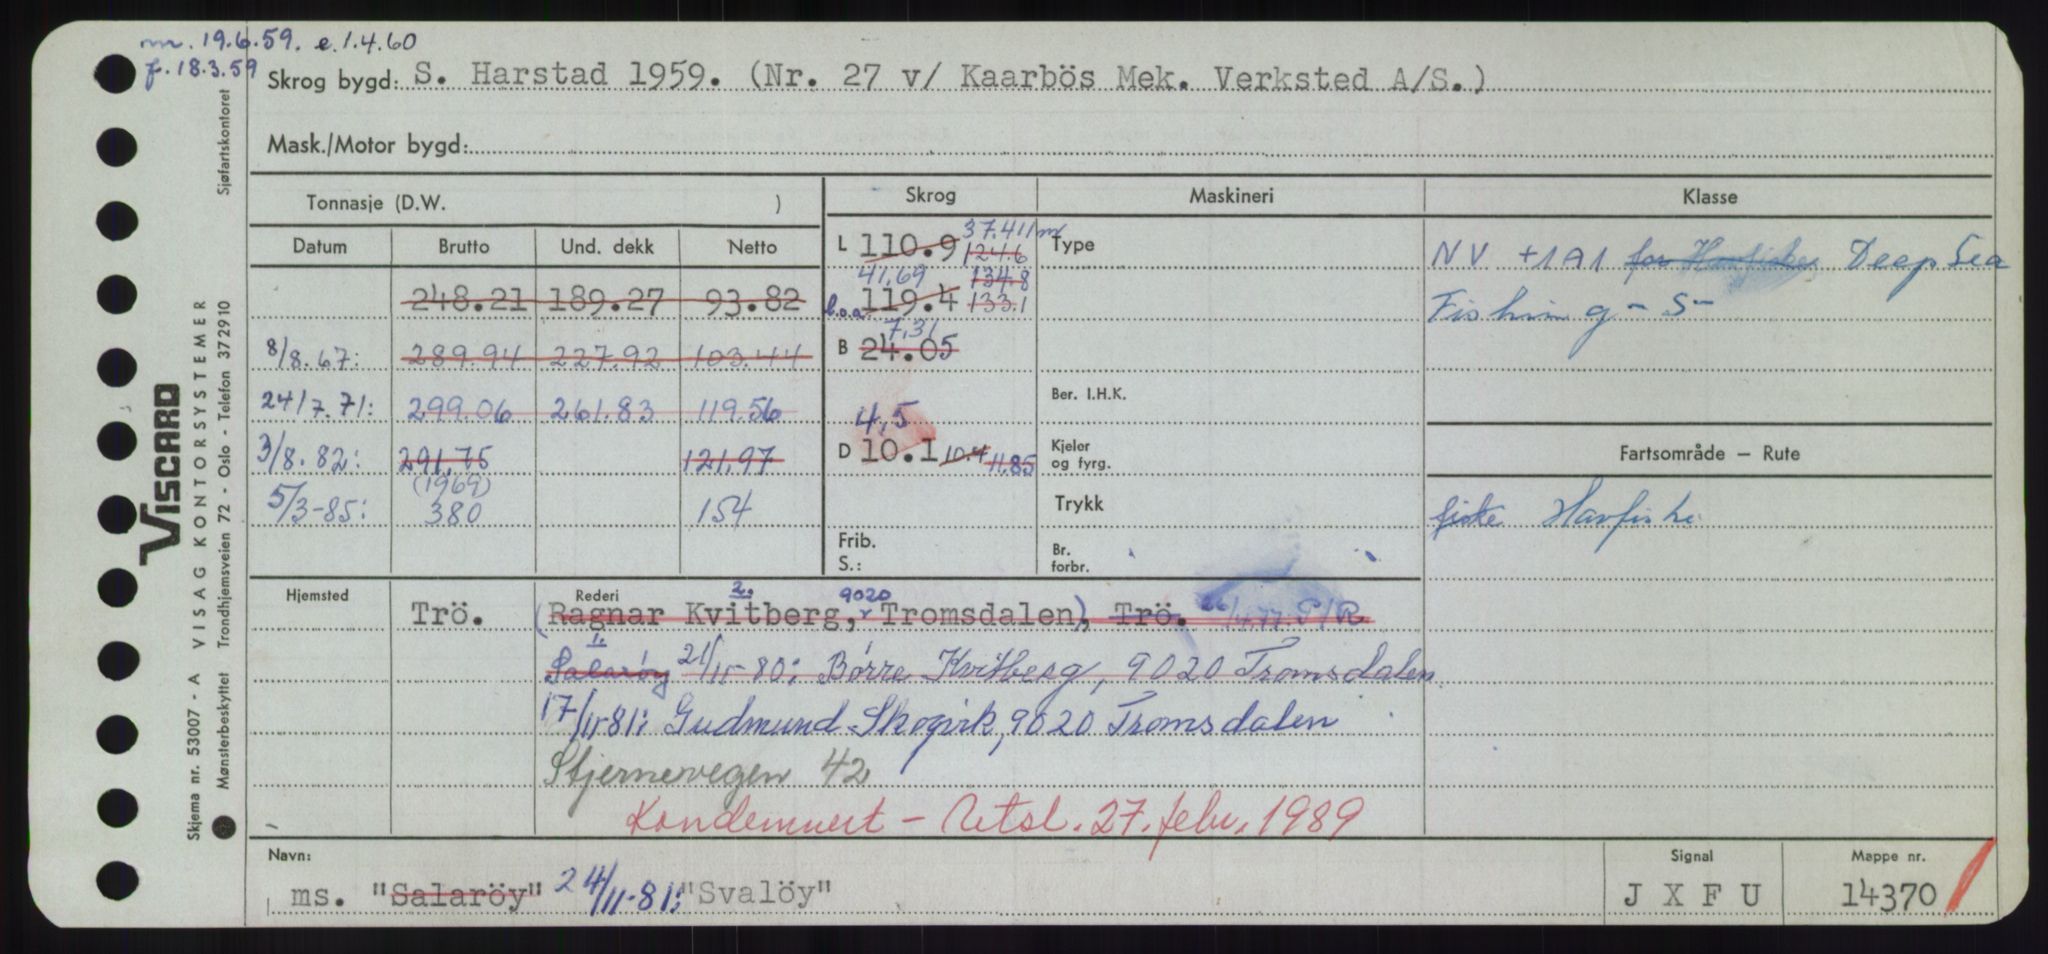 m. 19.6.59. e.1.4.60
f. 18.3.59
Skrog bygd: S. Harstad 1959. (Nr. 27 v/ Kaarbös Mek. Verksted A/S.)
Mask./Motor bygd:
Tonnasje (D.W. )
Skrog Maskineri Klasse
Datum Brutto Und. dekk Netto
248.21 189.27 93.82
8/8.67: 289.94 227.92 103.44
24/7.71: 299.06 261.83 119.56
3/8.82: 291,75 121,97
(1969)
5/3-85: 380 154
37.411m
L 110.9 124.6
41,69 134.8
l.o.a. 119.4 133.1
7,31
B 24.05
4,5
D 10.1 10.4 11.85
Frib.
S.:
Type
Ber. I.H.K.
Kjeler
og fyrg.
Trykk
Br.
forbr.
NV +1A1 for Havfiske Deep Sea
Fishing -S-
Fartsområde — Rute
fiske Havfiske
Hjemsted Rederi
2. 9020
Trö. (Ragnar Kvitberg, Tromsdalen), Trö. 26/4.77: P/R
1.
Salaröy 21/11-80: Børre Kvitberg, 9020 Tromsdalen
17/11-81: Gudmund Skogvik, 9020 Tromsdalen
Stjernevegen 42
Kondemnert - Retsl. 27. febr. 1989
Navn: Signal Mappe nr.
ms. "Salaröy" 24/11-81: "Svalöy" J X F U 14370
Sjøfartskontoret
VISCARD
VISAG KONTORSYSTEMER
Trondhjemsveien 72 - Oslo - Telefon 37 2910
Skjema nr. 53007 - A
Mønsterbeskyttet